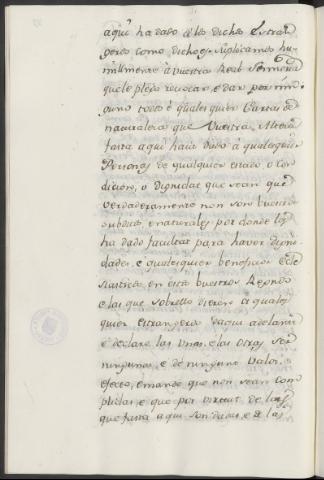 aqui ha dado a los dichos Extran
geros como dicho es: suplicamos hu-
milmente à Vuestra Real Señoria
que le plega revocar, e dar por nin-
guno todas e qualesquier Cartas de
naturaleza que Vuestra Alteza
fasta aqui haia dado à qualesquier
Personas de qualquier estado, o Con
dicion, o dignidad que sean que
verdaderamente non son vuestros
subditos, e naturales por donde les
ha dado facultad para haver digni-
dades, e qualesquier beneficios Ecle
siasticos en estos vuestros Regnos
e las que sobrello dieren a quales
quier estrangeros de aqui adelante
e declare las unas, e las otras ser
ningunas, e de ninguno valor, e
efecto, e mande que non sean com
plidas, e que por virtud de las
que fasta aqui son dadas, e de las